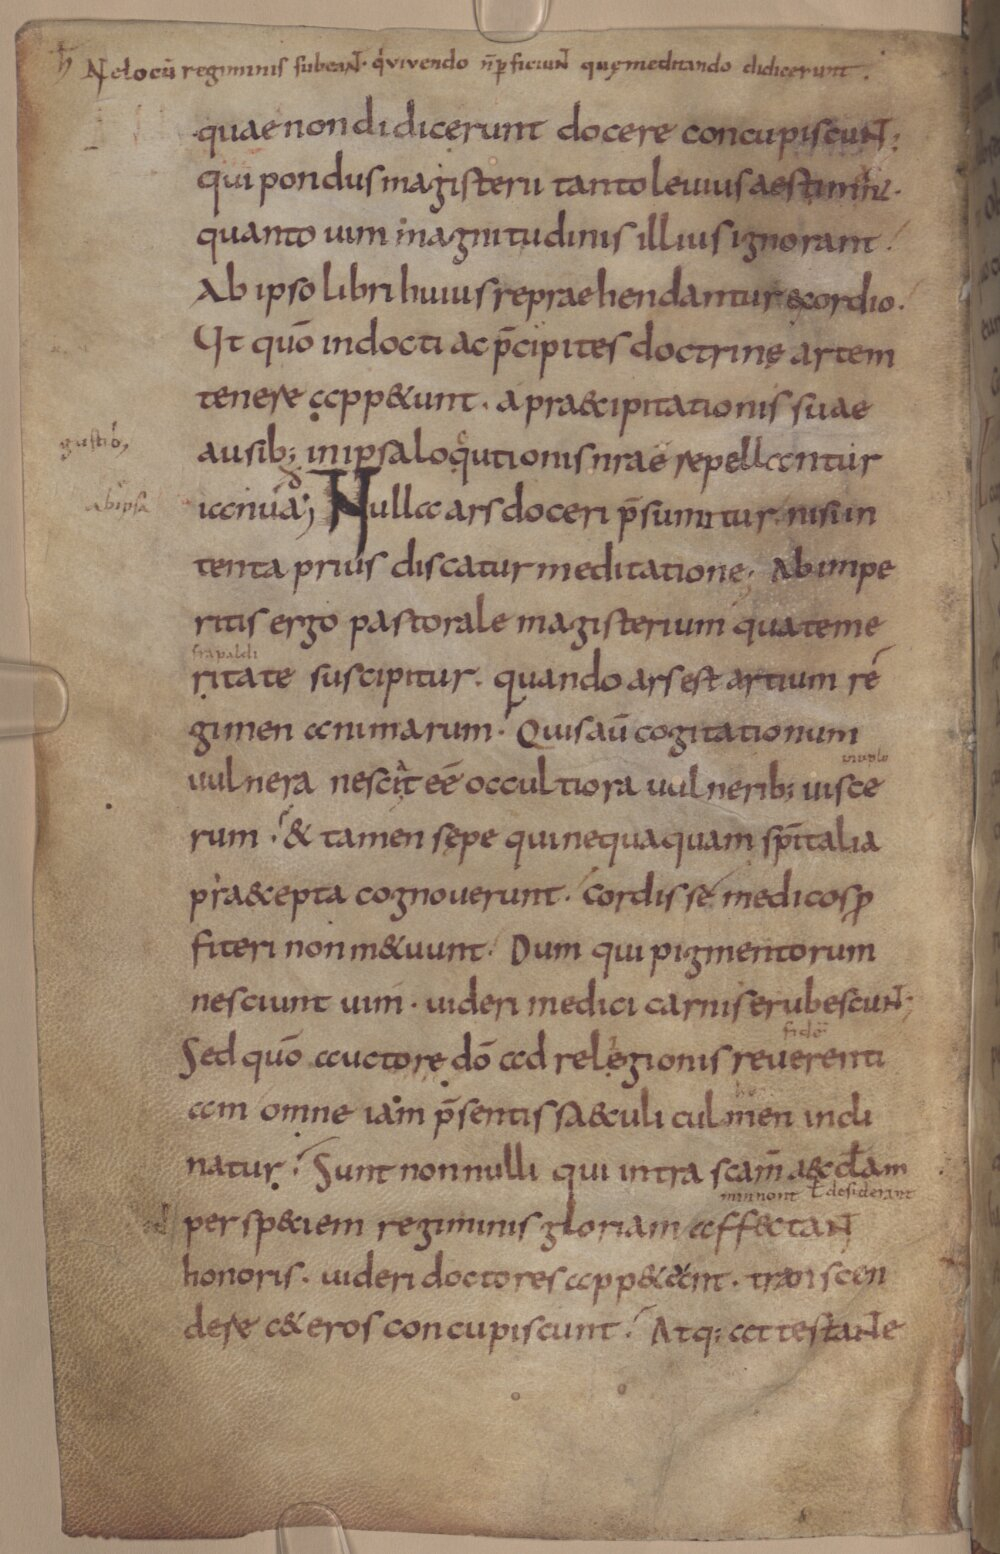 Nec locū regiminis subeaNT· q vivendo n̄ ꝑficiuNT quę meditando didicerunt.
quae non didicerunt docere concupiscuNT;
qui pondus magisterii tanto levius aestimant·
quanto vim magnitudinis illius ignorant.
Ab ipso libri huius reprae hendantur &xordio.
Ut quō indocti ac p̄cipites doctrinę artem
tenere app&unt. a pra&cipitationis suae
gustib;
ausib; in ipsa loqutionis nrae repellantur
ab ipsa
ianua; Nulla ars doceri p̄sumitur. nisi in
tenta prius discatur meditatione; Ab impe
ritis ergo pastorale magisterium qua teme
frapaldi
ritate suscipitur. quando ars est artium re
gimen animarum. Quis aū cogitationum
vulnera nesciat eē occultiora vulnerib; visce
rum. & tamen sępe qui nequaquam sp̄italia
pra&cepta cognoverunt. cordis se medicos ꝓ
fiteri non m&uunt. Dum qui pigmentorum
nesciunt vim. videri medici carnis erubescuNT;
fidē
Sed quō auctore dō ad religionis reverenti
am omne iam p̄sentis sa&culi culmen incli
natur. Sunt nonnulli qui intra scam̄ a&cclam
minnont ł desiderant
per sp&ciem regiminis gloriam aff&ctaNT
honoris. videri doctores app&unt. transcen
dere c&eros concupiscunt. Atq; attestaNTe